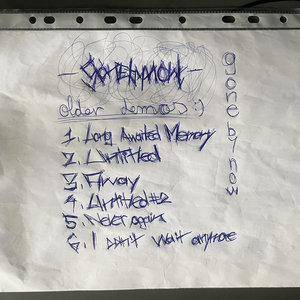 older demos :)
1. Long Awaited Memory
2. Untitled
3. Away
4. Untitled #2
5. Never again
6. I don't wait anymore
gone by now